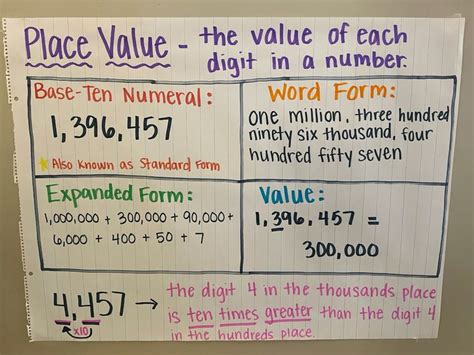 Place Value - the value of each
digit in a number.
Base-Ten Numeral:
1,396,457
Also known as Standard Form
Word Form:
One million, three hundred
ninety six thousand, four
hundred fifty seven
Expanded Form:
1,000,000 + 300,000 + 90,000 +
6,000 + 400 + 50 + 7
Value:
1,396,457 =
300,000
4,457 → the digit 4 in the thousands place
is ten times greater than the digit 4
in the hundreds place.
x10